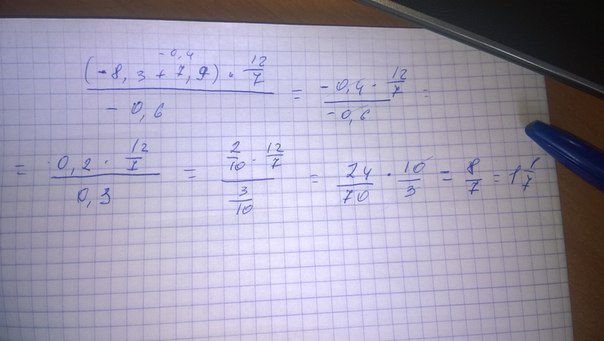 -0,4
(-8,3 + 7,9) · 12/7 / -0,6 = -0,4 · 12/7 / -0,6 =
= 0,2 · 12/7 / 0,3 = 2/10 · 12/7 / 3/10 = 24/70 · 10/3 = 8/7 = 1 1/7